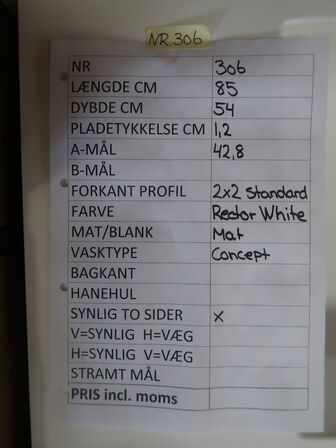 NR.306
NR 306
LÆNGDE CM 85
DYBDE CM 54
PLADETYKKELSE CM 1,2
A-MÅL 42,8
B-MÅL
FORKANT PROFIL 2x2 Standard
FARVE Rector White
MAT/BLANK Mat
VASKTYPE Concept
BAGKANT
HANEHUL
SYNLIG TO SIDER X
V=SYNLIG H=VÆG
H=SYNLIG V=VÆG
STRAMT MÅL
PRIS incl. moms